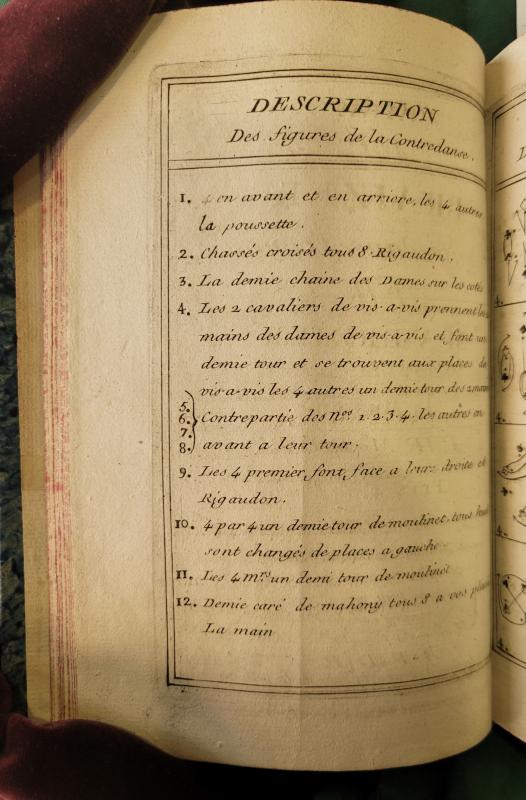 DESCRIPTION
Des figures de la Contredanse.
1. 4 en avant et en arriere, les 4 autres
la poussette.
2. Chassés croisés tous 8. Rigaudon.
3. La demie chaine des Dames sur les cotés
4. Les 2 cavaliers de vis-a-vis prennent les
mains des dames de vis-a-vis et font un
demie tour et se trouvent aux places de
vis-a-vis les 4 autres un demie tour des 2 mains
5.
6. Contrepartie des Nos. 1. 2. 3. 4. les autres en
7.
8. avant a leur tour.
9. Les 4 premier font face a leur droite et
Rigaudon.
10. 4 par 4 un demie tour de moulinet, tous
sont changés de places a gauche
11. Les 4 mrs un demi tour de moulinet
12. Demie caré de mahony tous 8 a vos places
La main